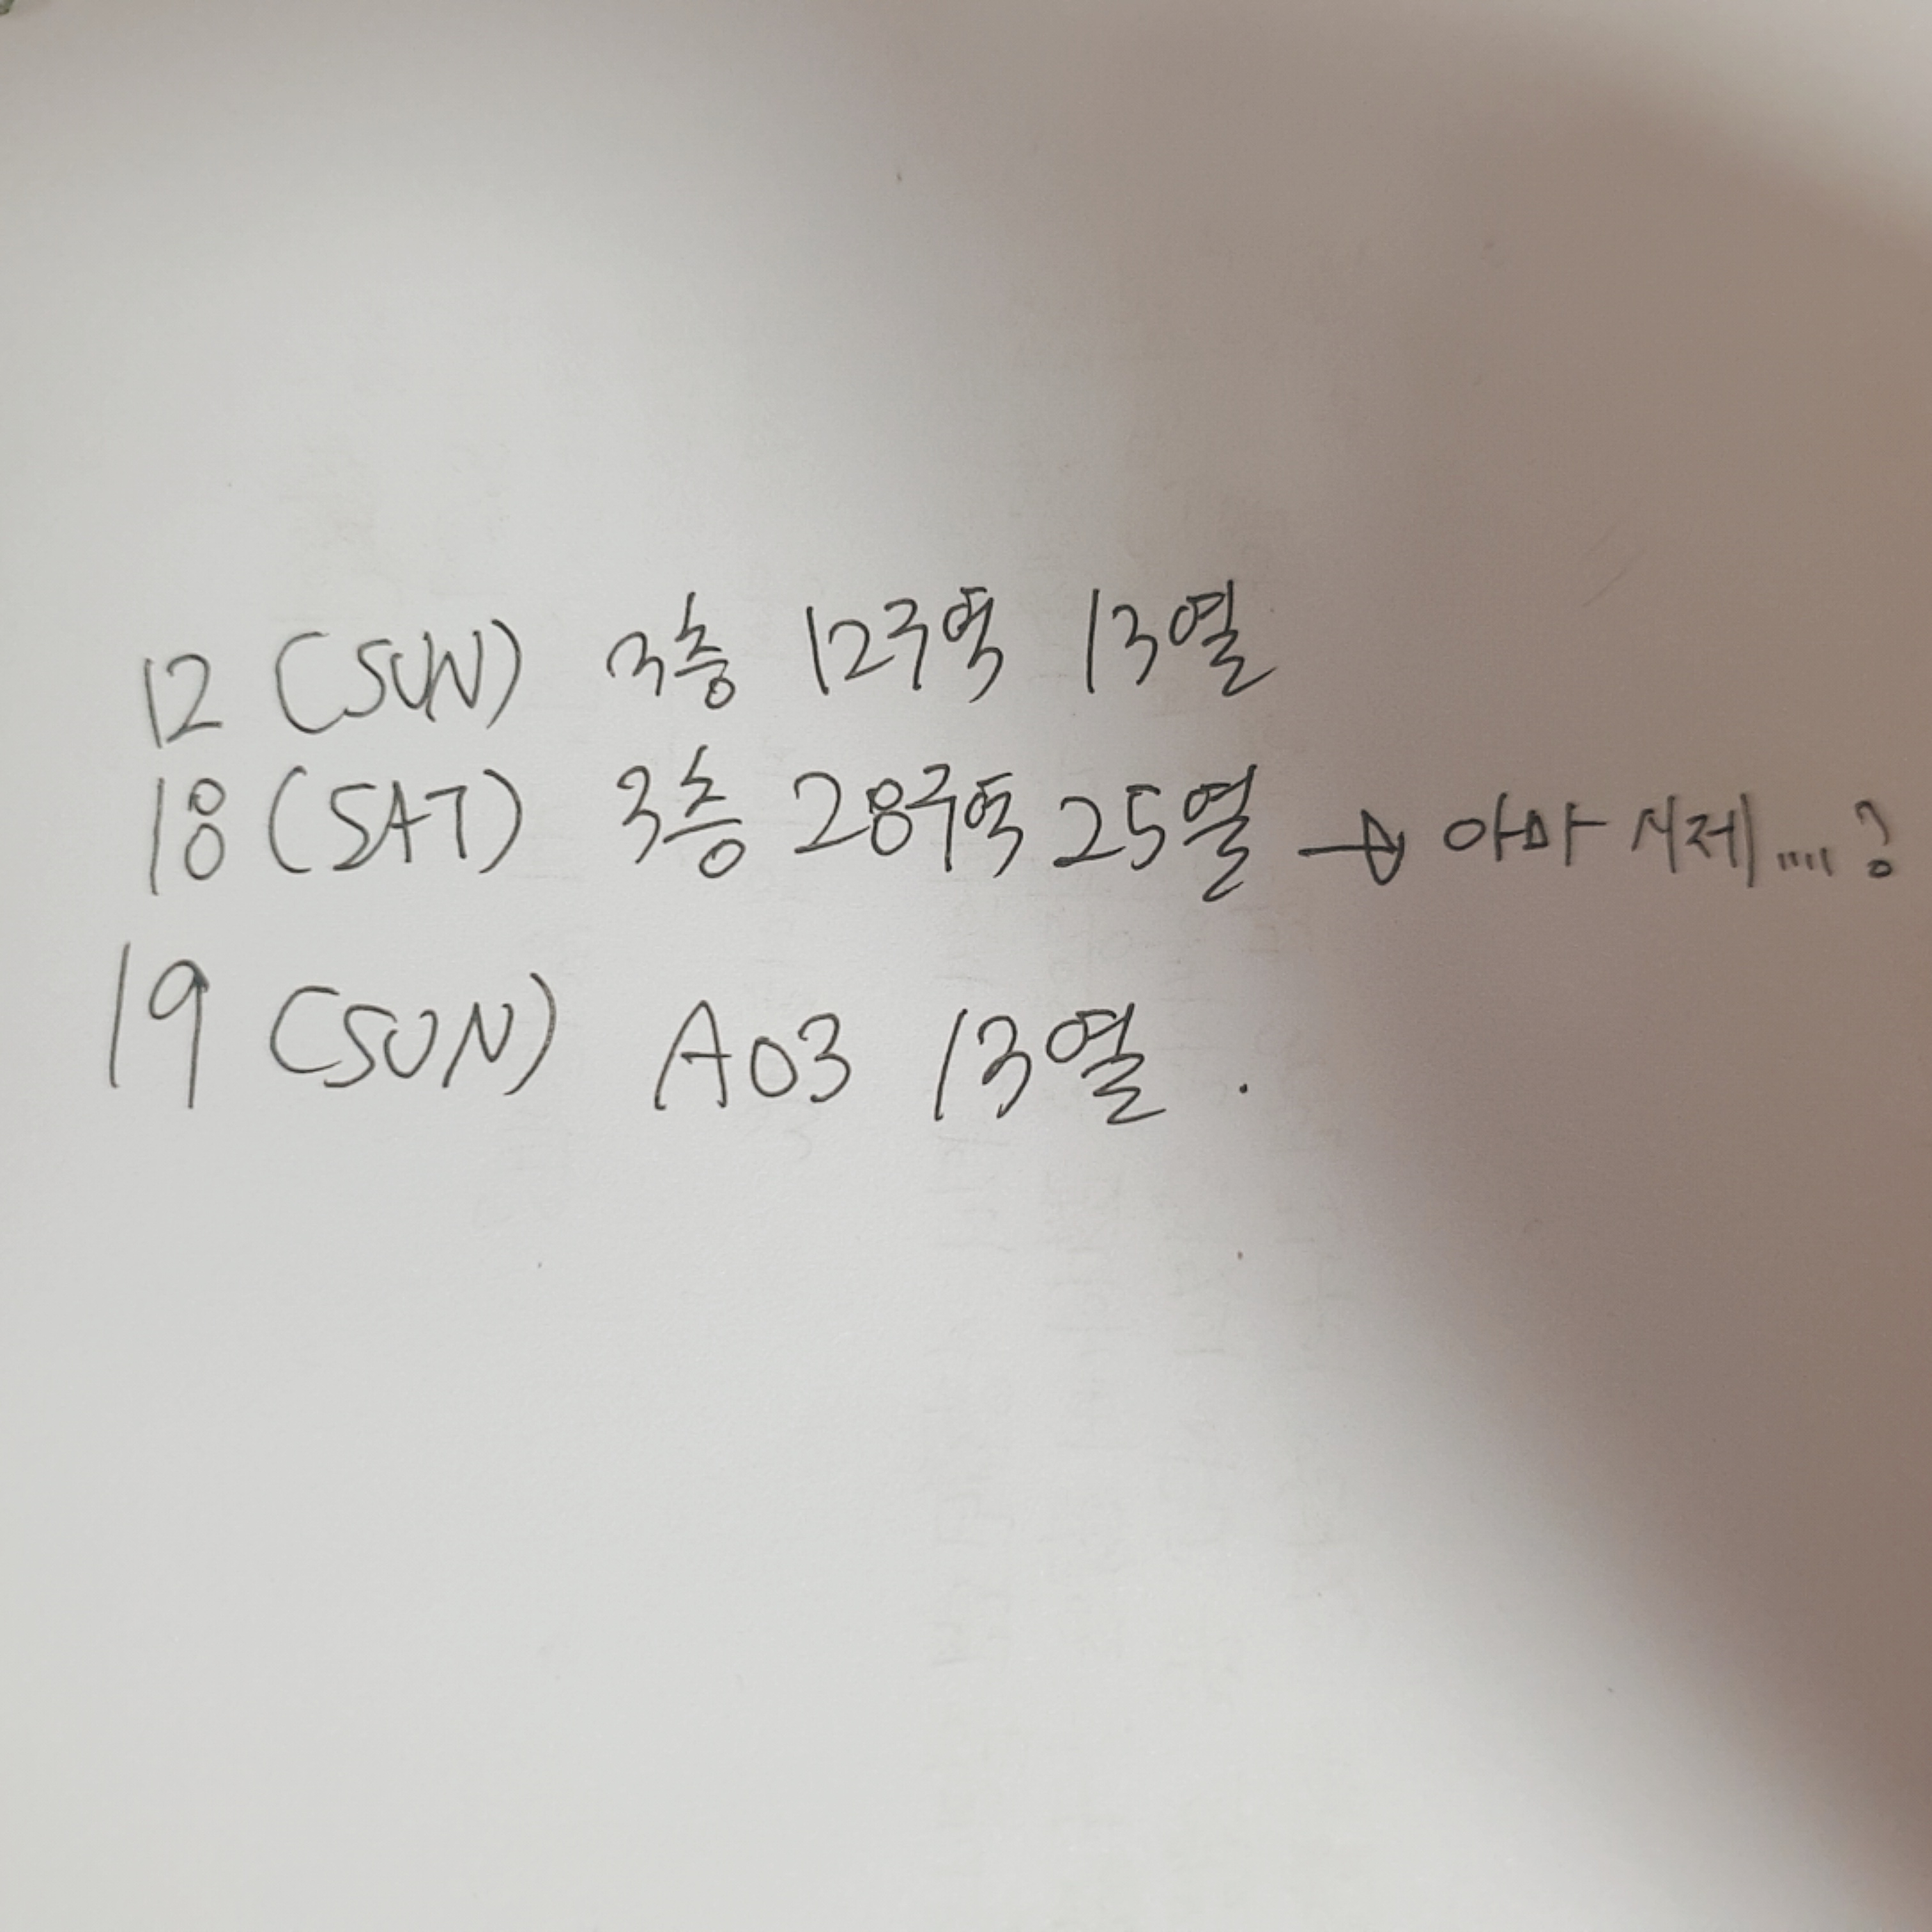 12 (SUN) 3층 12구역 13열
18 (SAT) 3층 28구역 25열 → 아마 시제....?
19 (SUN) A03 13열.